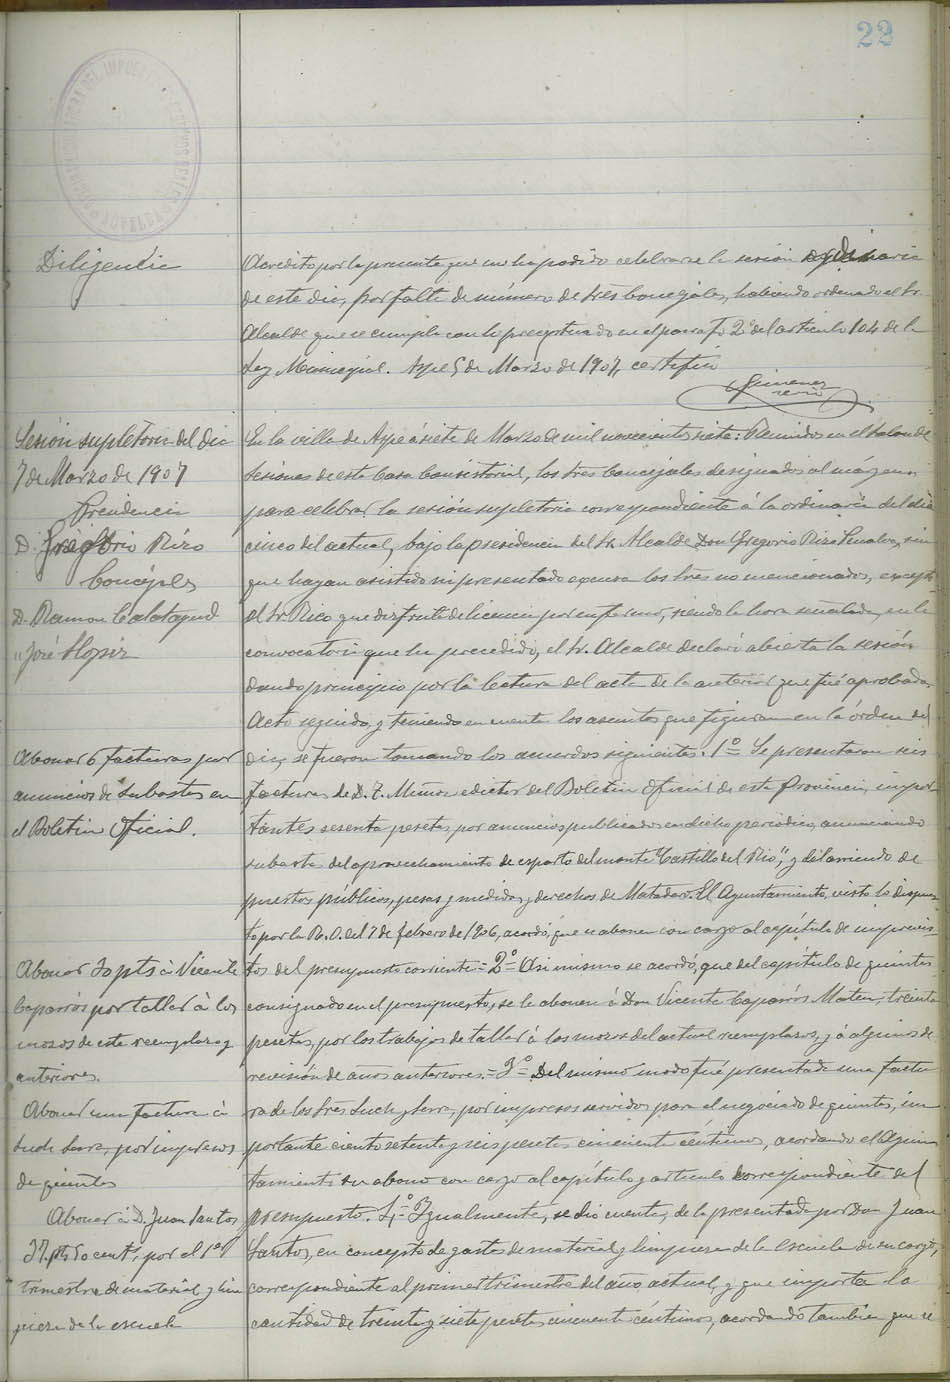 22
Diligencia
Acredito por la presente que no ha podido celebrarse la sesión ordinaria
de este dia, por falta de número de Sres Concejales, habiendo ordenado el Sr.
Alcalde que se cumpla con lo preceptuado en el parrafo 2º del articulo 104 de la
Ley Municipal. Aspe 5 de Marzo de 1907, certifico
Gimenez
Sesión supletoria del dia
7 de Marzo de 1907
Presidencia
D. Gregorio Rizo
Concejales
D. Ramon Calatayud
" José Llopis
En la villa de Aspe á siete de Marzo de mil novecientos siete: Reunidos en el Salon de
Sesiones de esta Casa Consistorial, los Sres Concejales designados al márgen,
para celebrar la sesión supletoria correspondiente á la ordinaria del dia
cinco del actual, bajo la presidencia del Sr. Alcalde Don Gregorio Rizo Penalva, sin
que hayan asistido ni presentado escusa los Sres no mencionados, excepto
el Sr. Rico que disfruta de licencia por enfermo, siendo la hora señalada en la
convocatoria que ha precedido, el Sr. Alcalde declaró abierta la sesión
dando principio por la lectura del acta de la anterior que fué aprobada.
Acto seguido, y teniendo en cuenta los asuntos que figuran en la órden del
dia, se fueron tomando los acuerdos siguientes: 1º = Se presentaron seis
Abonar 6 facturas por
anuncios de subastas en
el Boletin Oficial.
facturas de D. F. Muñoz editor del Boletin Oficial de esta Provincia, impor
tantes sesenta pesetas por anuncios publicados en dicho periódico, anunciando
subasta del aprovechamiento de esparto del monte "Castillo del Rio", y del arriendo de
puestos públicos, pesas y medidas, y derechos de Matadero. El Ayuntamiento, visto lo dispues
to por la R. O. del 7 de febrero de 1906, acordó, que se abonen con cargo al capítulo de imprevis-
tos del presupuesto corriente = 2º = Asi mismo se acordó, que del capítulo de quintas
Abonar 30 pts á Vicente
Caparrós por tallar á los
mozos de este reemplazo y
anteriores.
consignado en el presupuesto, se le abonen á Don Vicente Caparrós Mateu, treinta
pesetas, por los trabajos de tallar á los mozos del actual reemplazo, y á algunos de
revisión de años anteriores. = 3º = Del mismo modo fué presentada una factu
Abonar una factura á
Such Serra, por impresos
de quintas
ra de los Sres Such y Serra, por impresos servidos para el negociado de quintas, im
portante ciento setenta y seis pesetas cincuenta céntimos, acordando el Ayun
tamiento su abono con cargo al capítulo y articulo correspondiente del
Abonar á D. Juan Santos
37 pts 50 cents, por el 1er
trimestre de material y lim
pieza de la escuela
presupuesto. 4º = Igualmente, se dio cuenta, de la presentada por Don Juan
Santos, en concepto de gastos de material y limpieza de la escuela de su cargo,
correspondiente al primer trimestre del año actual, y que importa la
cantidad de treinta y siete pesetas cincuenta céntimos, acordando tambien que se